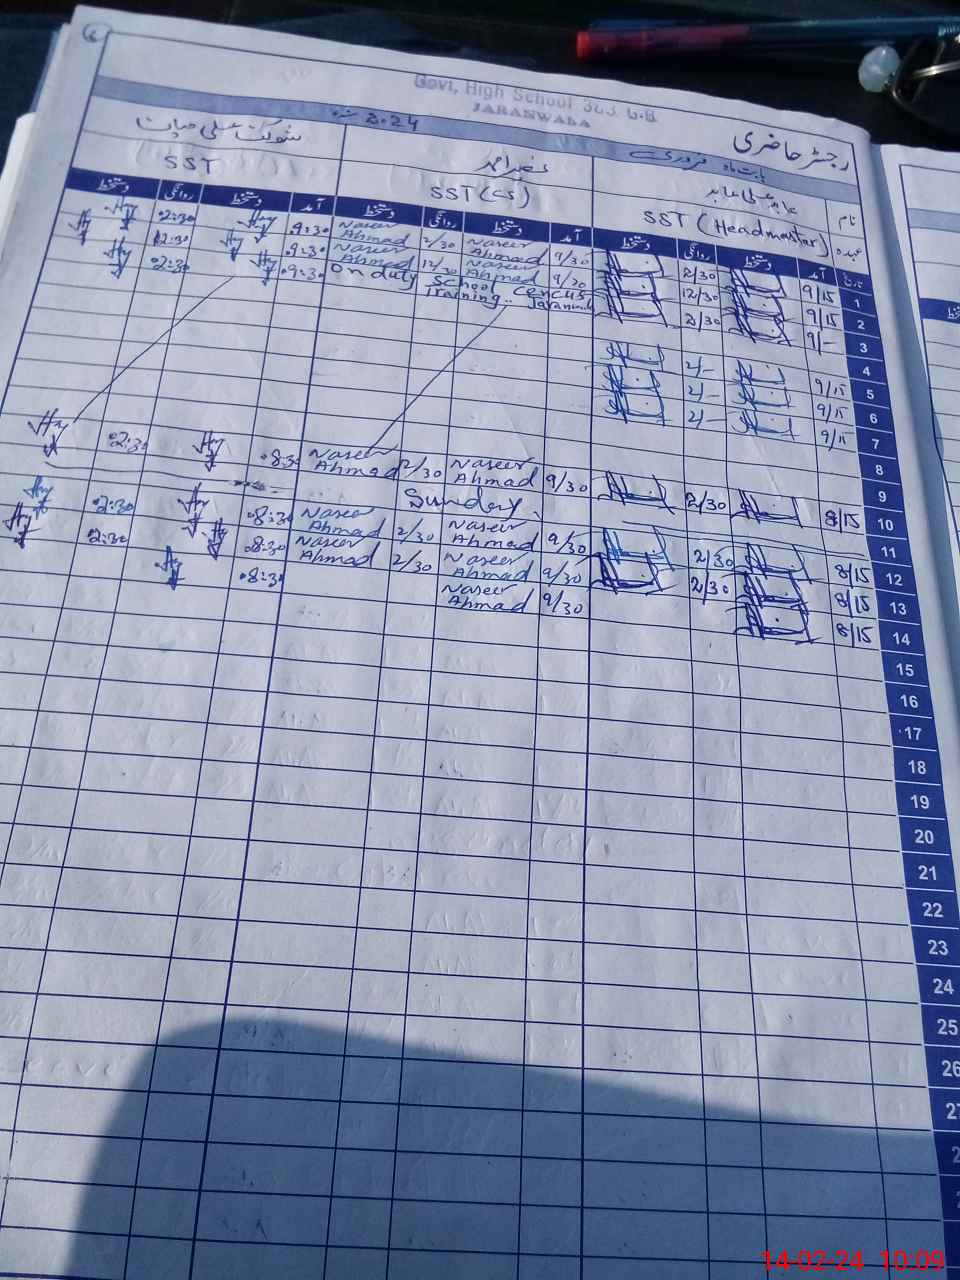 6
Govt, High School 363 G.B
JARANWALA
رجسٹر حاضری
بابت ماہ فروری
2024
نام
شوکت علی حیات
عہدہ
SST (Headmaster)
SST (CS)
SST
تاریخ آمد دستخط روانگی دستخط آمد دستخط روانگی دستخط آمد دستخط روانگی دستخط
1 9/15 2/30 9/30 Naseer Ahmad 2/30 Naseer Ahmad 9:30 2:30
2 9/15 12/30 9/30 Naseer Ahmad 12/30 Naseer Ahmad 9:30 12:30
3 9/- 2/30 On duty School Census Training.. Jaranwala 9:30 2:30
4
5 9/15 2/-
6 9/15 2/-
7 9/15 2/-
8
9 9/30 Naseer Ahmad 2/30 Naseer Ahmad 8:30 2:30
10 8/15 2/30
Sunday
11
12 8/15 2/30 9/30 Naseer Ahmad 2/30 Naseer Ahmad 8:30 2:30
13 8/15 2/30 9/30 Naseer Ahmad 2/30 Naseer Ahmad 8:30 2:30
14 8/15 9/30 Naseer Ahmad 8:30
15
16
17
18
19
20
21
22
23
24
25
26
27
14-02-24 10:09